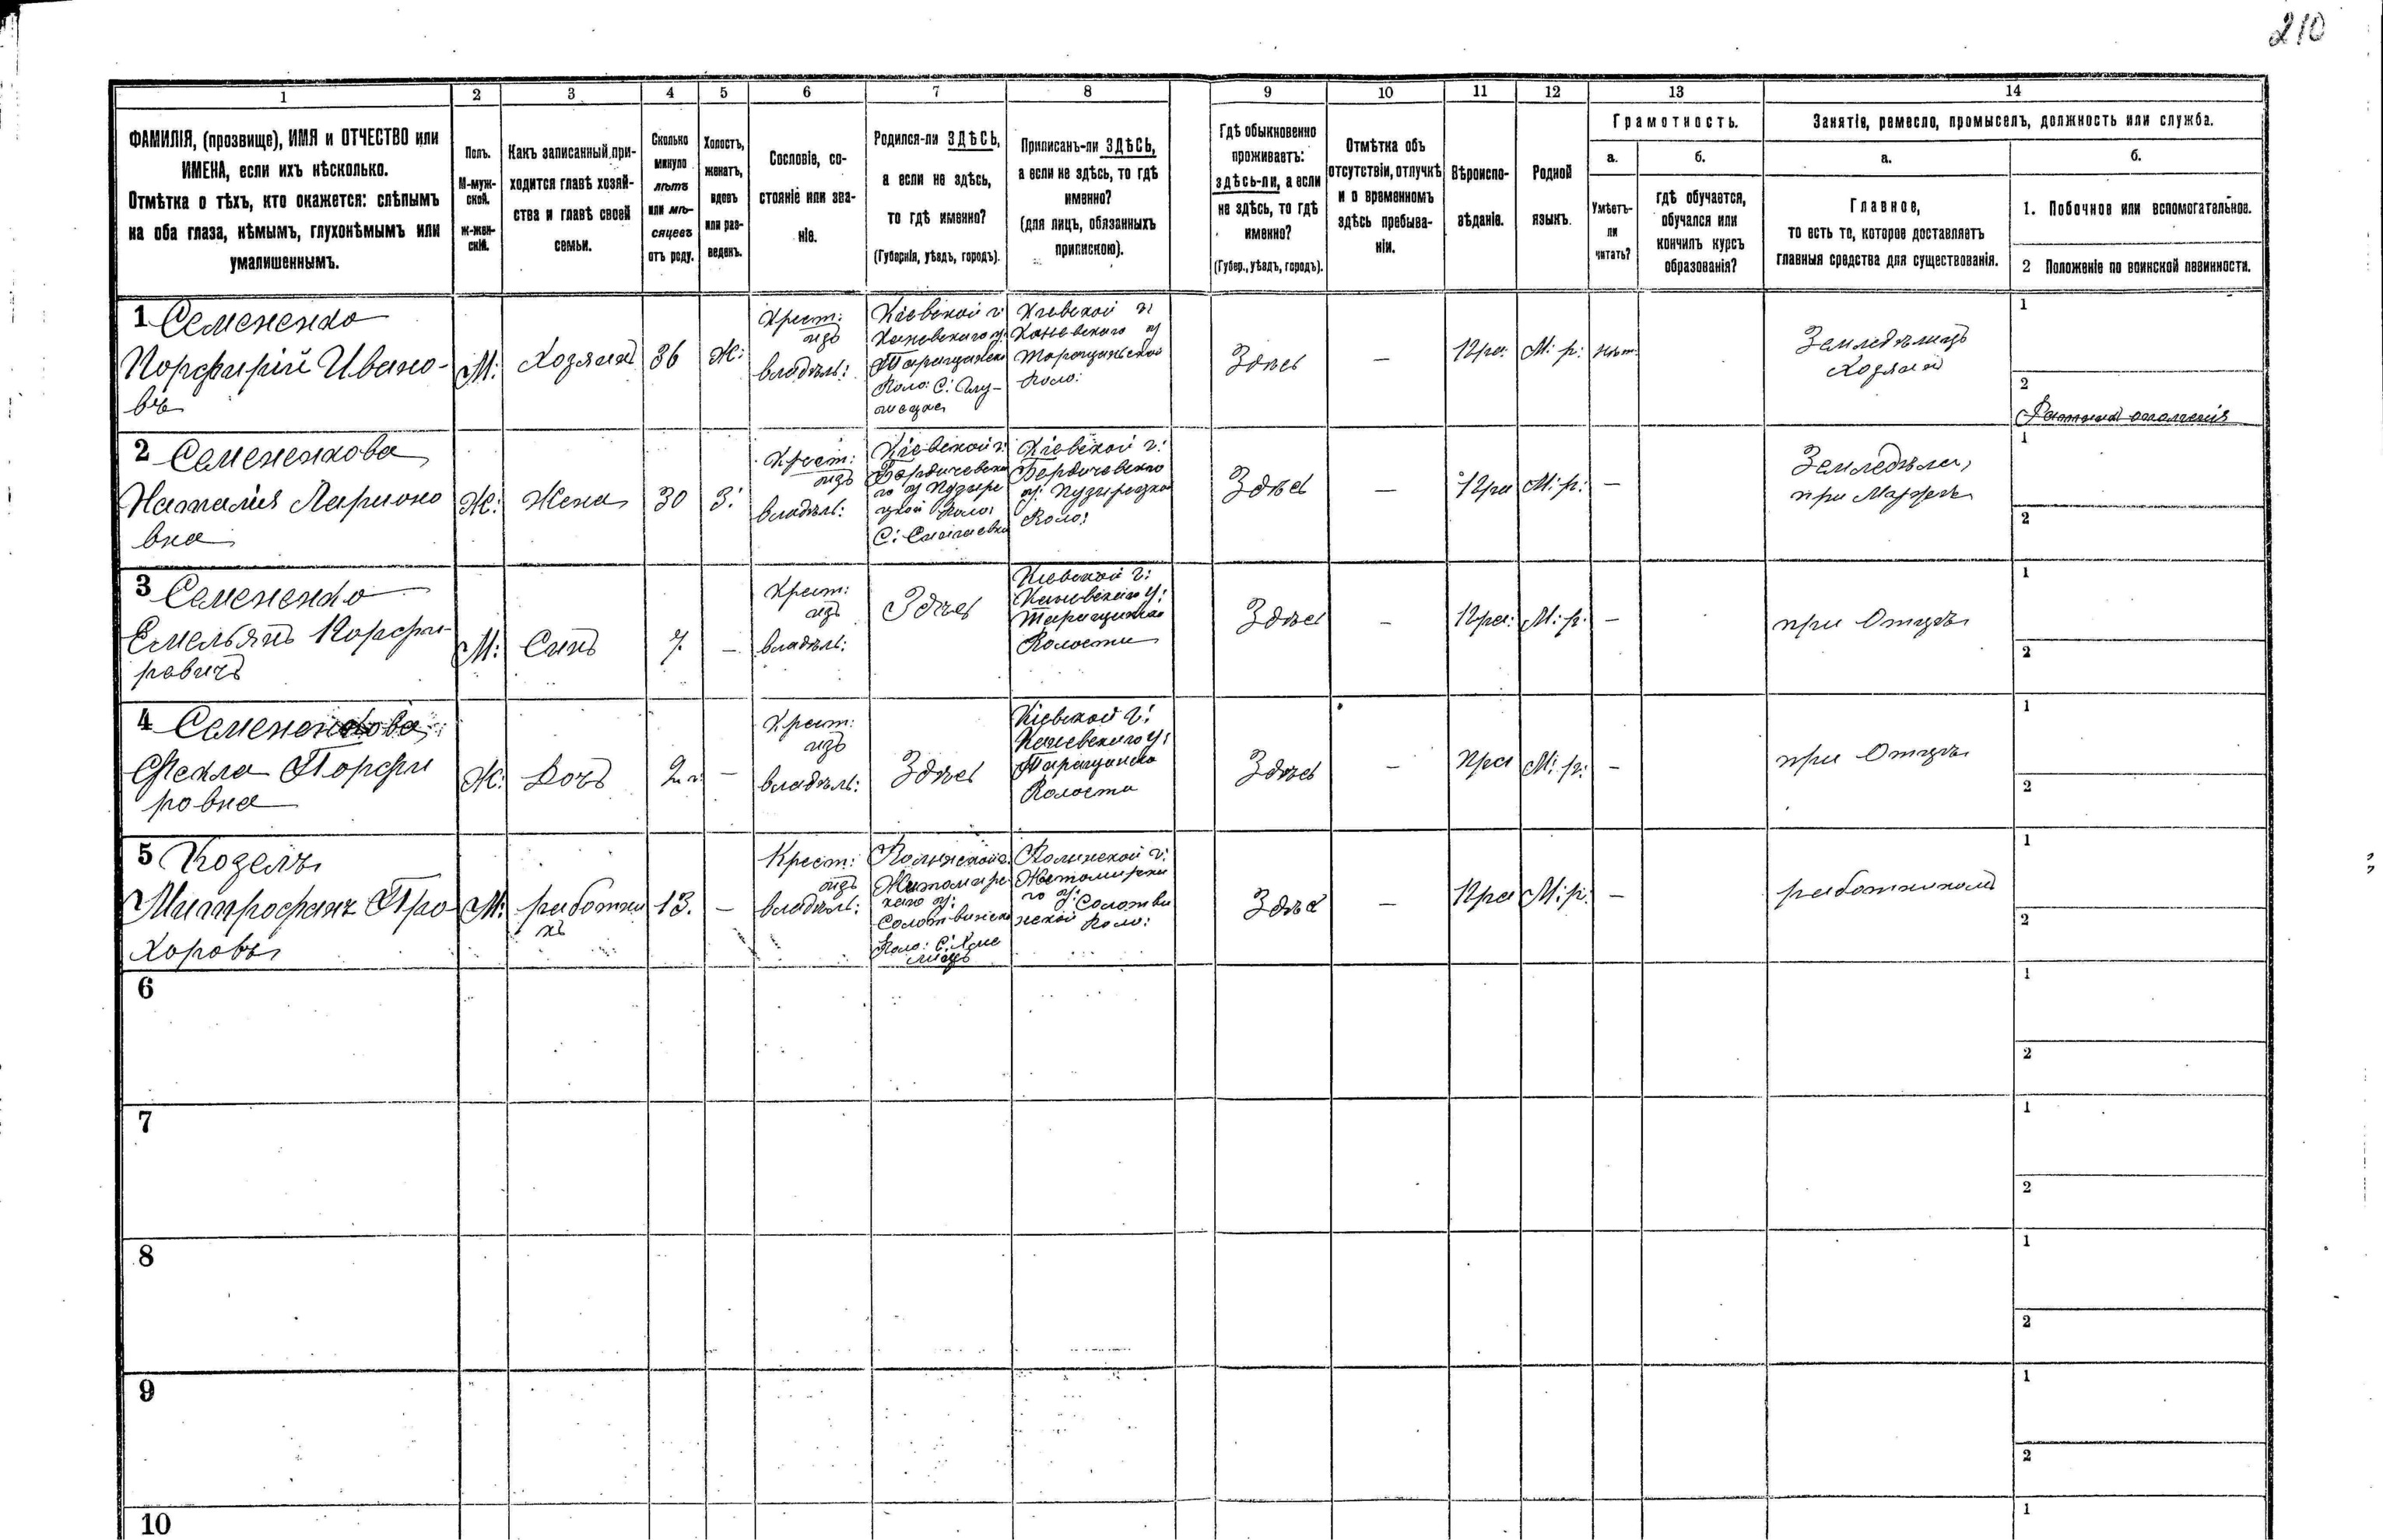 210
1
2
3
4
5
6
7
8
9
10
11
12
13
14
ФАМИЛІЯ, (прозвище), ИМЯ и ОТЧЕСТВО или
ИМЕНА, если ихъ нѣсколько.
Отмѣтка о тѣхъ, кто окажется: слѣпымъ
на оба глаза, нѣмымъ, глухонѣмымъ или
умалишеннымъ.
Полъ.
М-муж-
ской.
ж-жен-
скій.
Какъ записанный при-
ходится главѣ хозяй-
ства и главѣ своей
семьи.
Сколько
минуло
лѣтъ
или мѣ-
сяцевъ
отъ роду.
Холостъ,
женатъ,
вдовъ
или раз-
веденъ.
Сословіе, со-
стояніе или зва-
ніе.
Родился-ли ЗДѢСЬ,
а если не здѣсь,
то гдѣ именно?
(Губернія, уѣздъ, городъ).
Приписанъ-ли ЗДѢСЬ,
а если не здѣсь, то гдѣ
именно?
(для лицъ, обязанныхъ
припискою).
Гдѣ обыкновенно
проживаетъ:
здѣсь-ли, а если
не здѣсь, то гдѣ
именно?
(Губер., уѣздъ, городъ).
Отмѣтка объ
отсутствіи, отлучкѣ
и о временномъ
здѣсь пребыва-
ніи.
Вѣроиспо-
вѣданіе.
Родной
языкъ.
Грамотность.
а.
б.
Умѣетъ-
ли
читать?
гдѣ обучается,
обучался или
кончилъ курсъ
образованія?
Занятіе, ремесло, промыселъ, должность или служба.
а.
б.
Главное,
то есть то, которое доставляетъ
главныя средства для существованія.
1. Побочное или вспомогательное.
2 Положеніе по воинской повинности.
1 Семененко
Порфирій Ивано-
въ
М:
Хозяинъ
36
Ж:
Крест:
изъ
владѣль:
Кіевской г:
Каневскаго у:
Таращанск
Воло: С:
Кіевской г:
Каневскаго у
Таращанской
Воло:
Здѣсь
—
Пра:
М: р:
нѣт
Земледѣлецъ
Хозяинъ
1
2
Ратникъ ополченія
2 Семененкова
Наталія Ларионо
вна
Ж:
Жена
30
З:
Крест:
изъ
владѣль:
Кіевской г:
Бердичевска
го у Пузыре
цкой Воло:
Кіевской г:
Бердичевскаго
у: Пузырецкой
Воло:
Здѣсь
—
Пра
М: р:
—
Земледѣлец,
при Мужѣ
1
2
3 Семененко
Емельянъ Порфи-
ровичъ
М:
Синъ
7.
—
Крест:
изъ
владѣль:
Здѣсь
Кіевской г:
Каневскаго У:
Таращанско
Волости
Здѣсь
—
Пра:
М: р:
—
при Отцѣ
1
2
4 Семененкова
Фекла Порфи
ровна
Ж:
Дочъ
2 г:
—
Крест:
изъ
владѣль:
Здѣсь
Кіевской г:
Каневскаго У:
Таращанско
Волости
Здѣсь
—
Пра
М: р:
—
при Отцѣ
1
2
5 Козелъ
Митрофанъ Про
хоровъ
М:
работни
къ
13.
—
Крест:
изъ
владѣль:
Волынской г.
Житомирс
каго у:
Солотвинско
Воло: С:
Волинской г:
Житомирска
го у: Солотви
нской Воло:
Здѣсь
—
Пра
М: р:
—
работникомъ
1
2
6
1
2
7
1
2
8
1
2
9
1
2
10
1